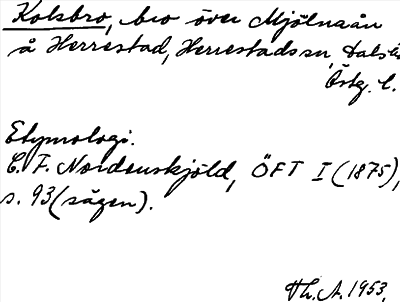 Kolsbro, bro över Mjölnaån
å Herrestad, Herrestads sn, Dals
Östg. l.
Etymologi.
C. F. Nordenskjöld, ÖFT I (1875),
s. 93 (sägen).
Th. A. 1953.